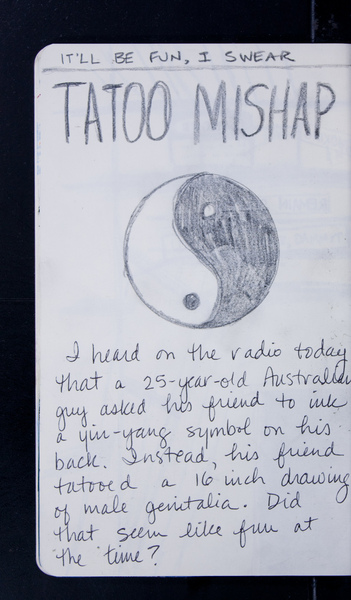 IT'LL BE FUN, I SWEAR
TATOO MISHAP
I heard on the radio today
that a 25-year-old Australian
guy asked his friend to ink
a yin-yang symbol on his
back. Instead, his friend
tatooed a 16 inch drawing
of male genitalia. Did
that seem like fun at
the time?